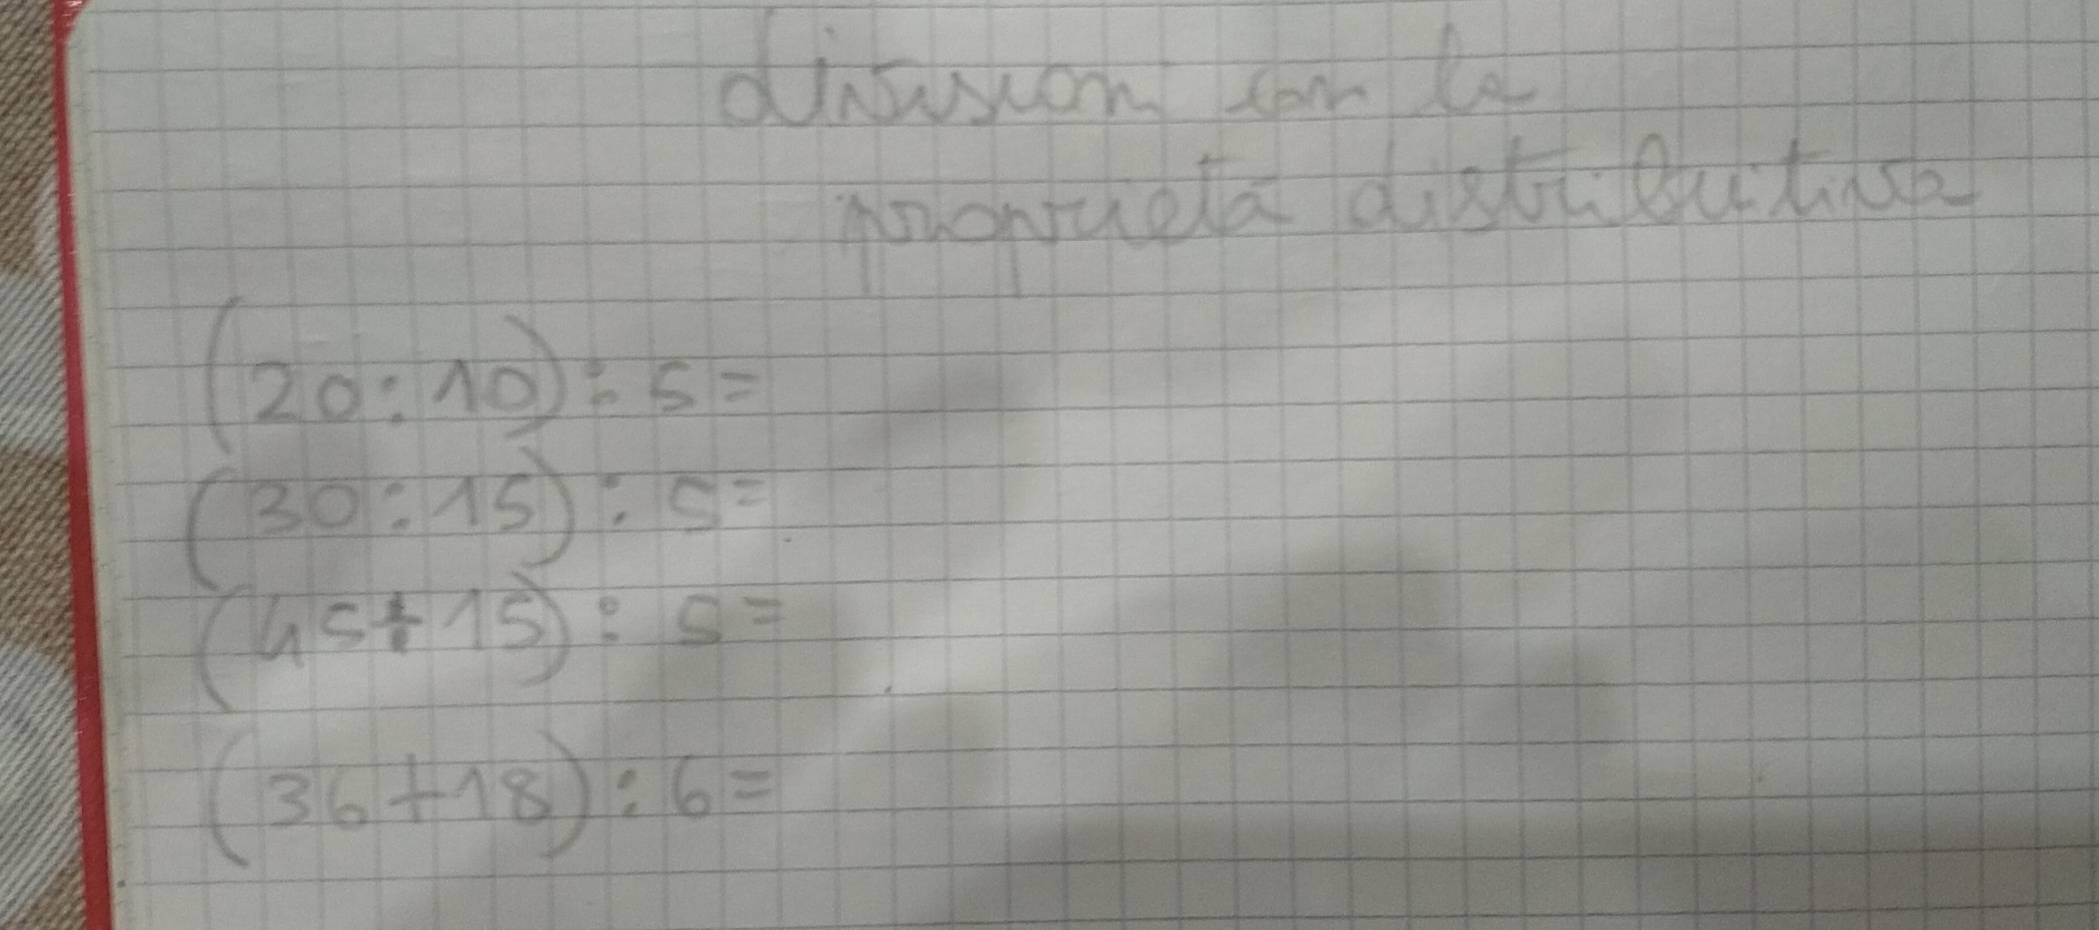 division con la
proprietà distributiva
(20:10):5=
(30:15):5=
(45+15):5=
(36+18):6=